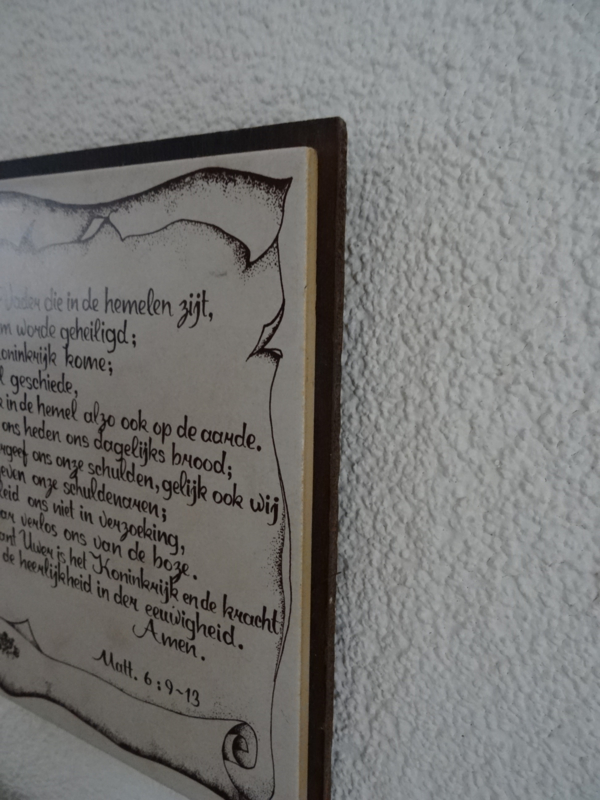 Vader die in de hemelen zijt,
worde geheiligd;
koninkrijk kome;
geschiede,
in de hemel alzo ook op de aarde.
ons heden ons dagelijks brood;
ons onze schulden, gelijk ook wij
onze schuldenaren;
ons niet in verzoeking,
verlos ons van de boze.
Uwer is het Koninkrijk en de kracht
de heerlijkheid in der eeuwigheid.
Amen.
Matt. 6:9-13